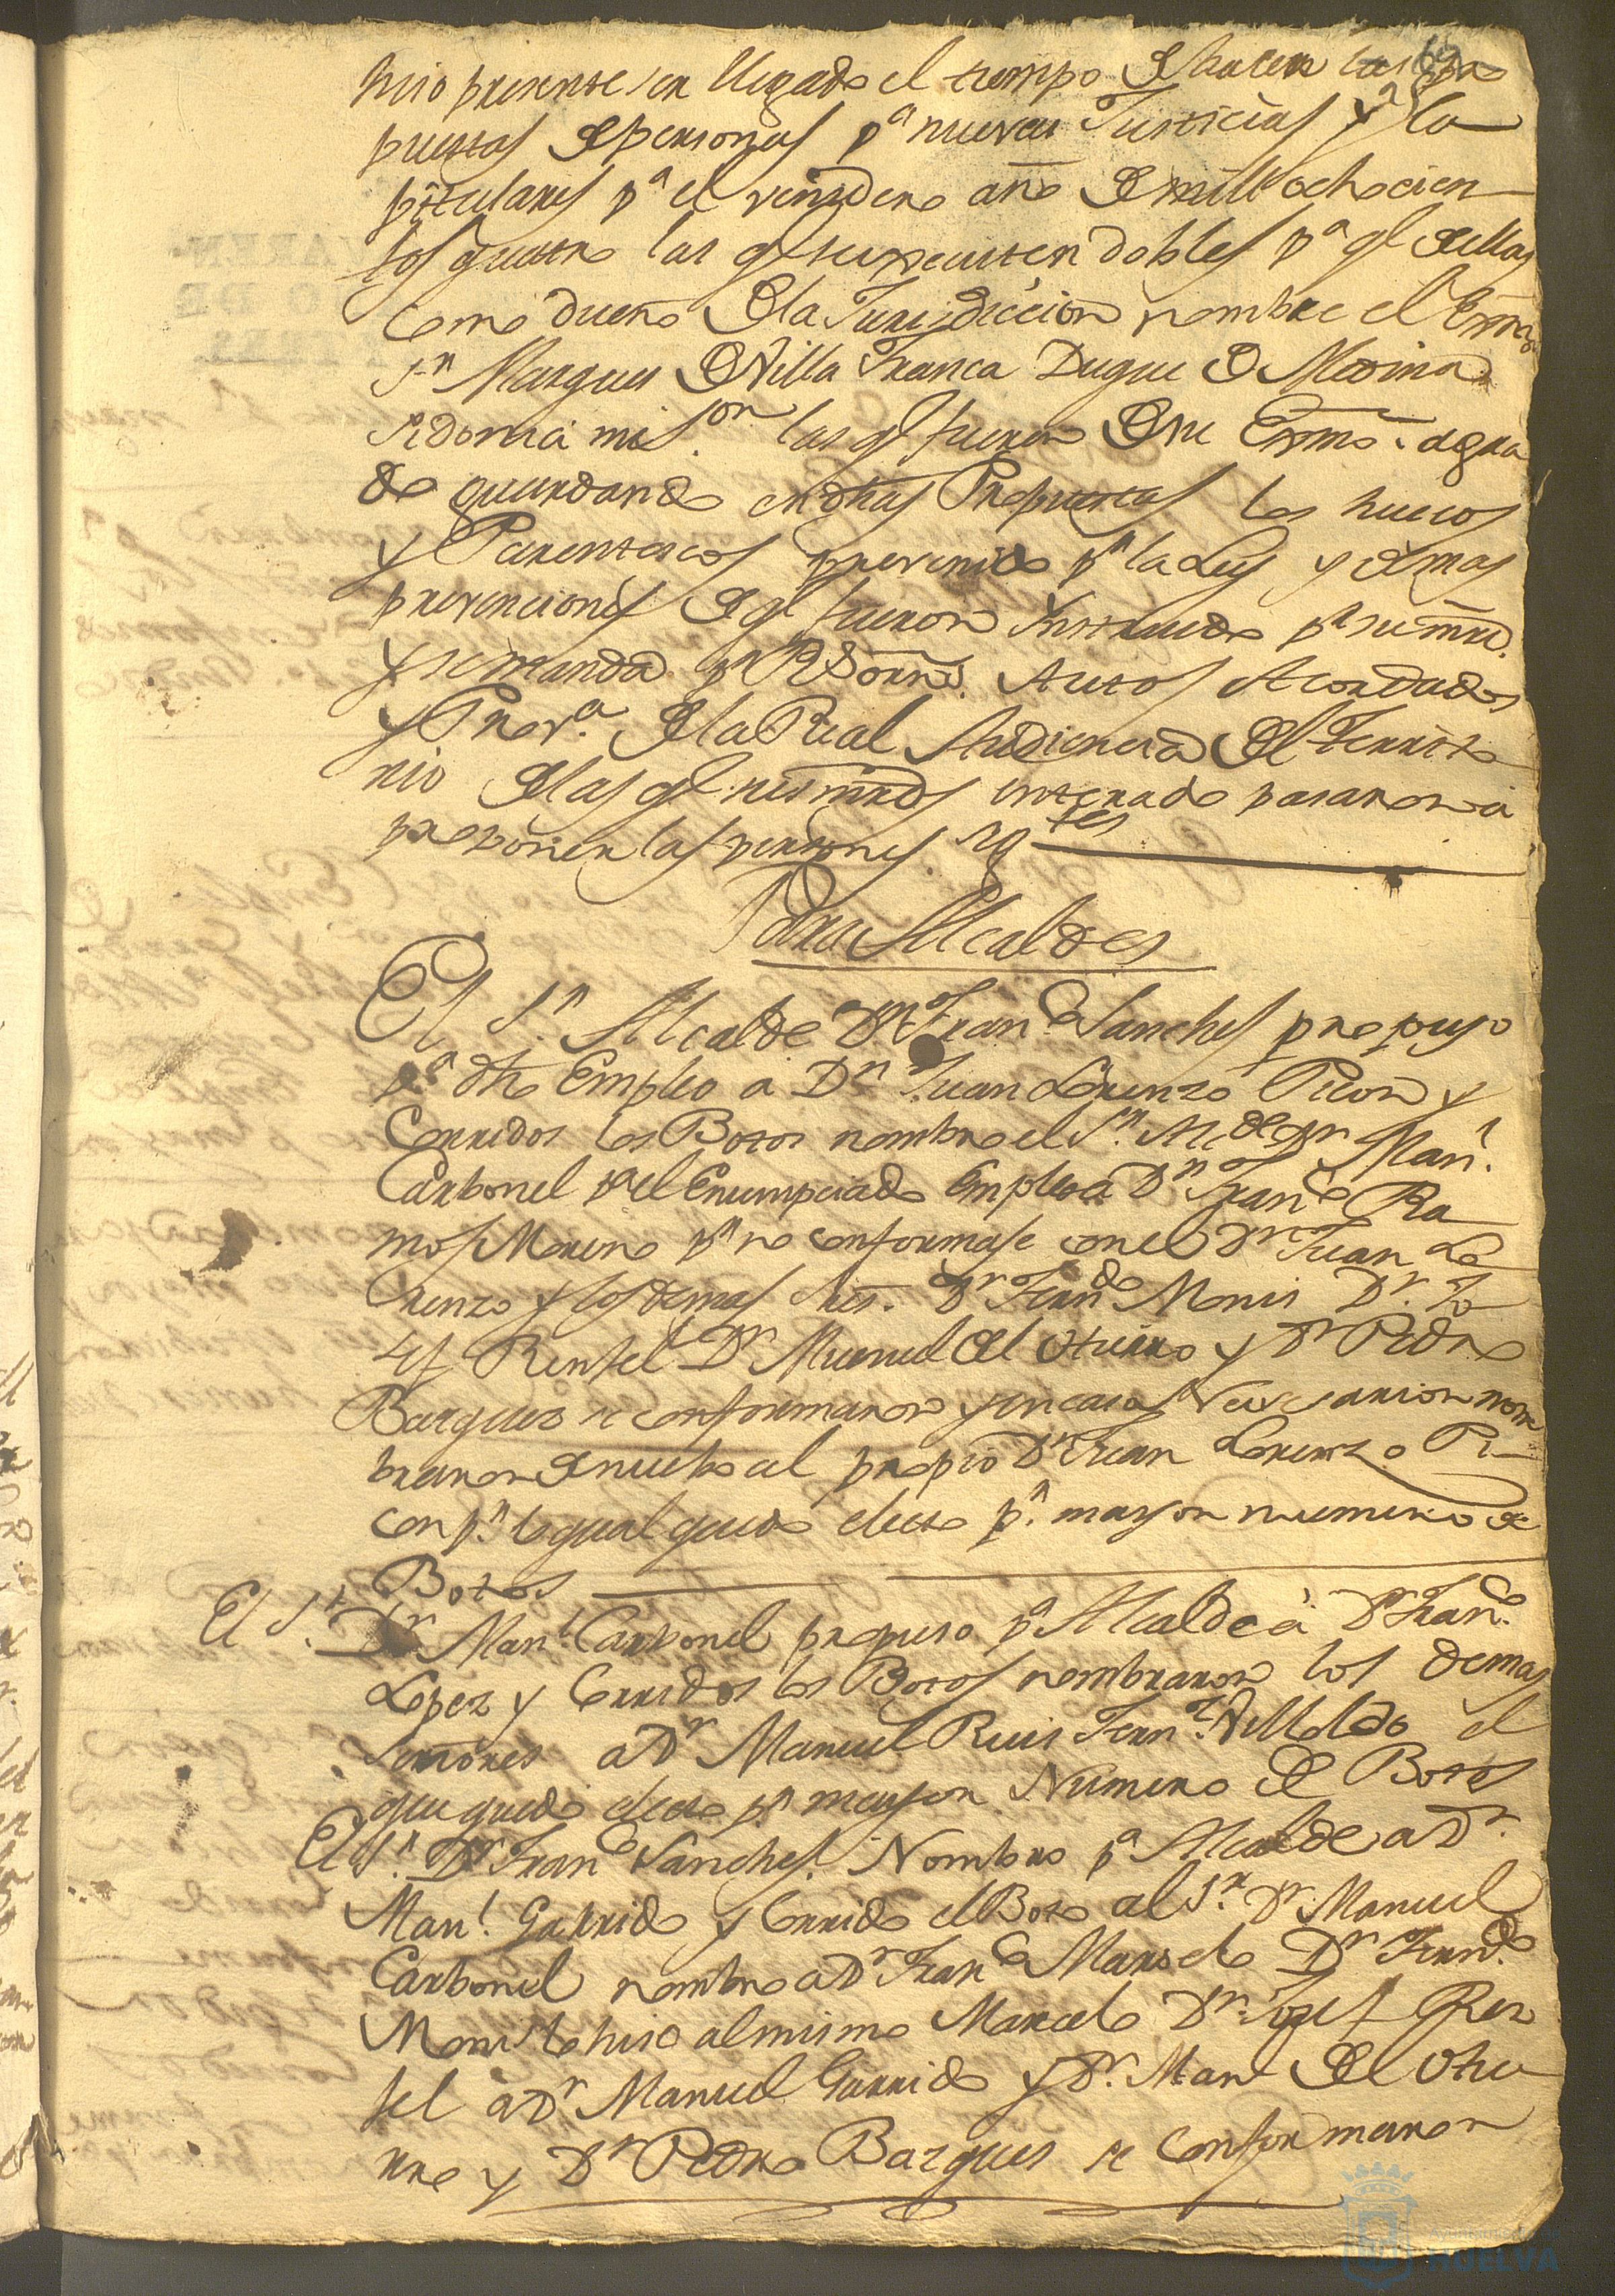 hiso presente ser llegado el tiempo de hacer las pro
puestas de personas pª nuevas Justicias y Ca
pitulares pª el venidero año de mill ochocien
tos quatro las qe se executen dobles pª qe de ellas
como dueño de la Jurisdiccion nombre el Exmo
Sr. Marques de Villa Franca Duque de Medina
Sidonia mi Sor. las qe fueren de su Exmo. agra
do guardando en dhas Propuestas los huecos
y Parentescos prevenido pr la Ley y demas
prevenciones de qe fueron Ynstruido pr su mrd.
y se manda pr Rs Ornes. Autos Acordados
y Prova. de la Real Audiencia del Territo
rio de las qe sus mrds enterado pasaron a
proponer las personas sigtes
Para Alcaldes
El Sr. Alcalde Dn Franco Sanches propuso
pª dho Empleo a Dn Juan Lorenzo Picon y
Corridos los Botos nombro el Sr. Alcde Dn Manl.
Carbonel pª el Enumpciado Empleo a Dn Franco Ra
mos Moreno pr no conformase con el Dn Juan Lo
renzo y los demas Sres. Dn Ferndo Monis Dn. Jo
sef Rensel Dn Manuel del Otiero y Dn Pedro
Bazques se conformaron y en caso Nesesario nom
braron de nuebo al propio Dn Juan Lorenzo Pi
con pr. lo qual quedo electo pr. mayor numero de
Botos
El Sr. Dn Manl. Carbonel propuso pª Alcalde à Dn Franco.
Lopez y Corridos los Botos nombraron los demas
Señores a Dn Manuel Ruis Fernz. Villoldo el
que quedo electo pr mayor Numero de Botos
El Sr. Dn Franco Sanches. Nombro pª Alcalde a Dn.
Manl. Garrido y Corrido el Boto al Sr. Dn Manuel
Carbonel nombro a Dn Franco Marselo Dn Ferndo.
Monis lo hiso al mismo Marcelo Dn. Josef Ren
sel a Dn Manuel Garrido y Dn. Manl del Otie
rro y Dn Pedro Bazques se conformaron
HUELVA